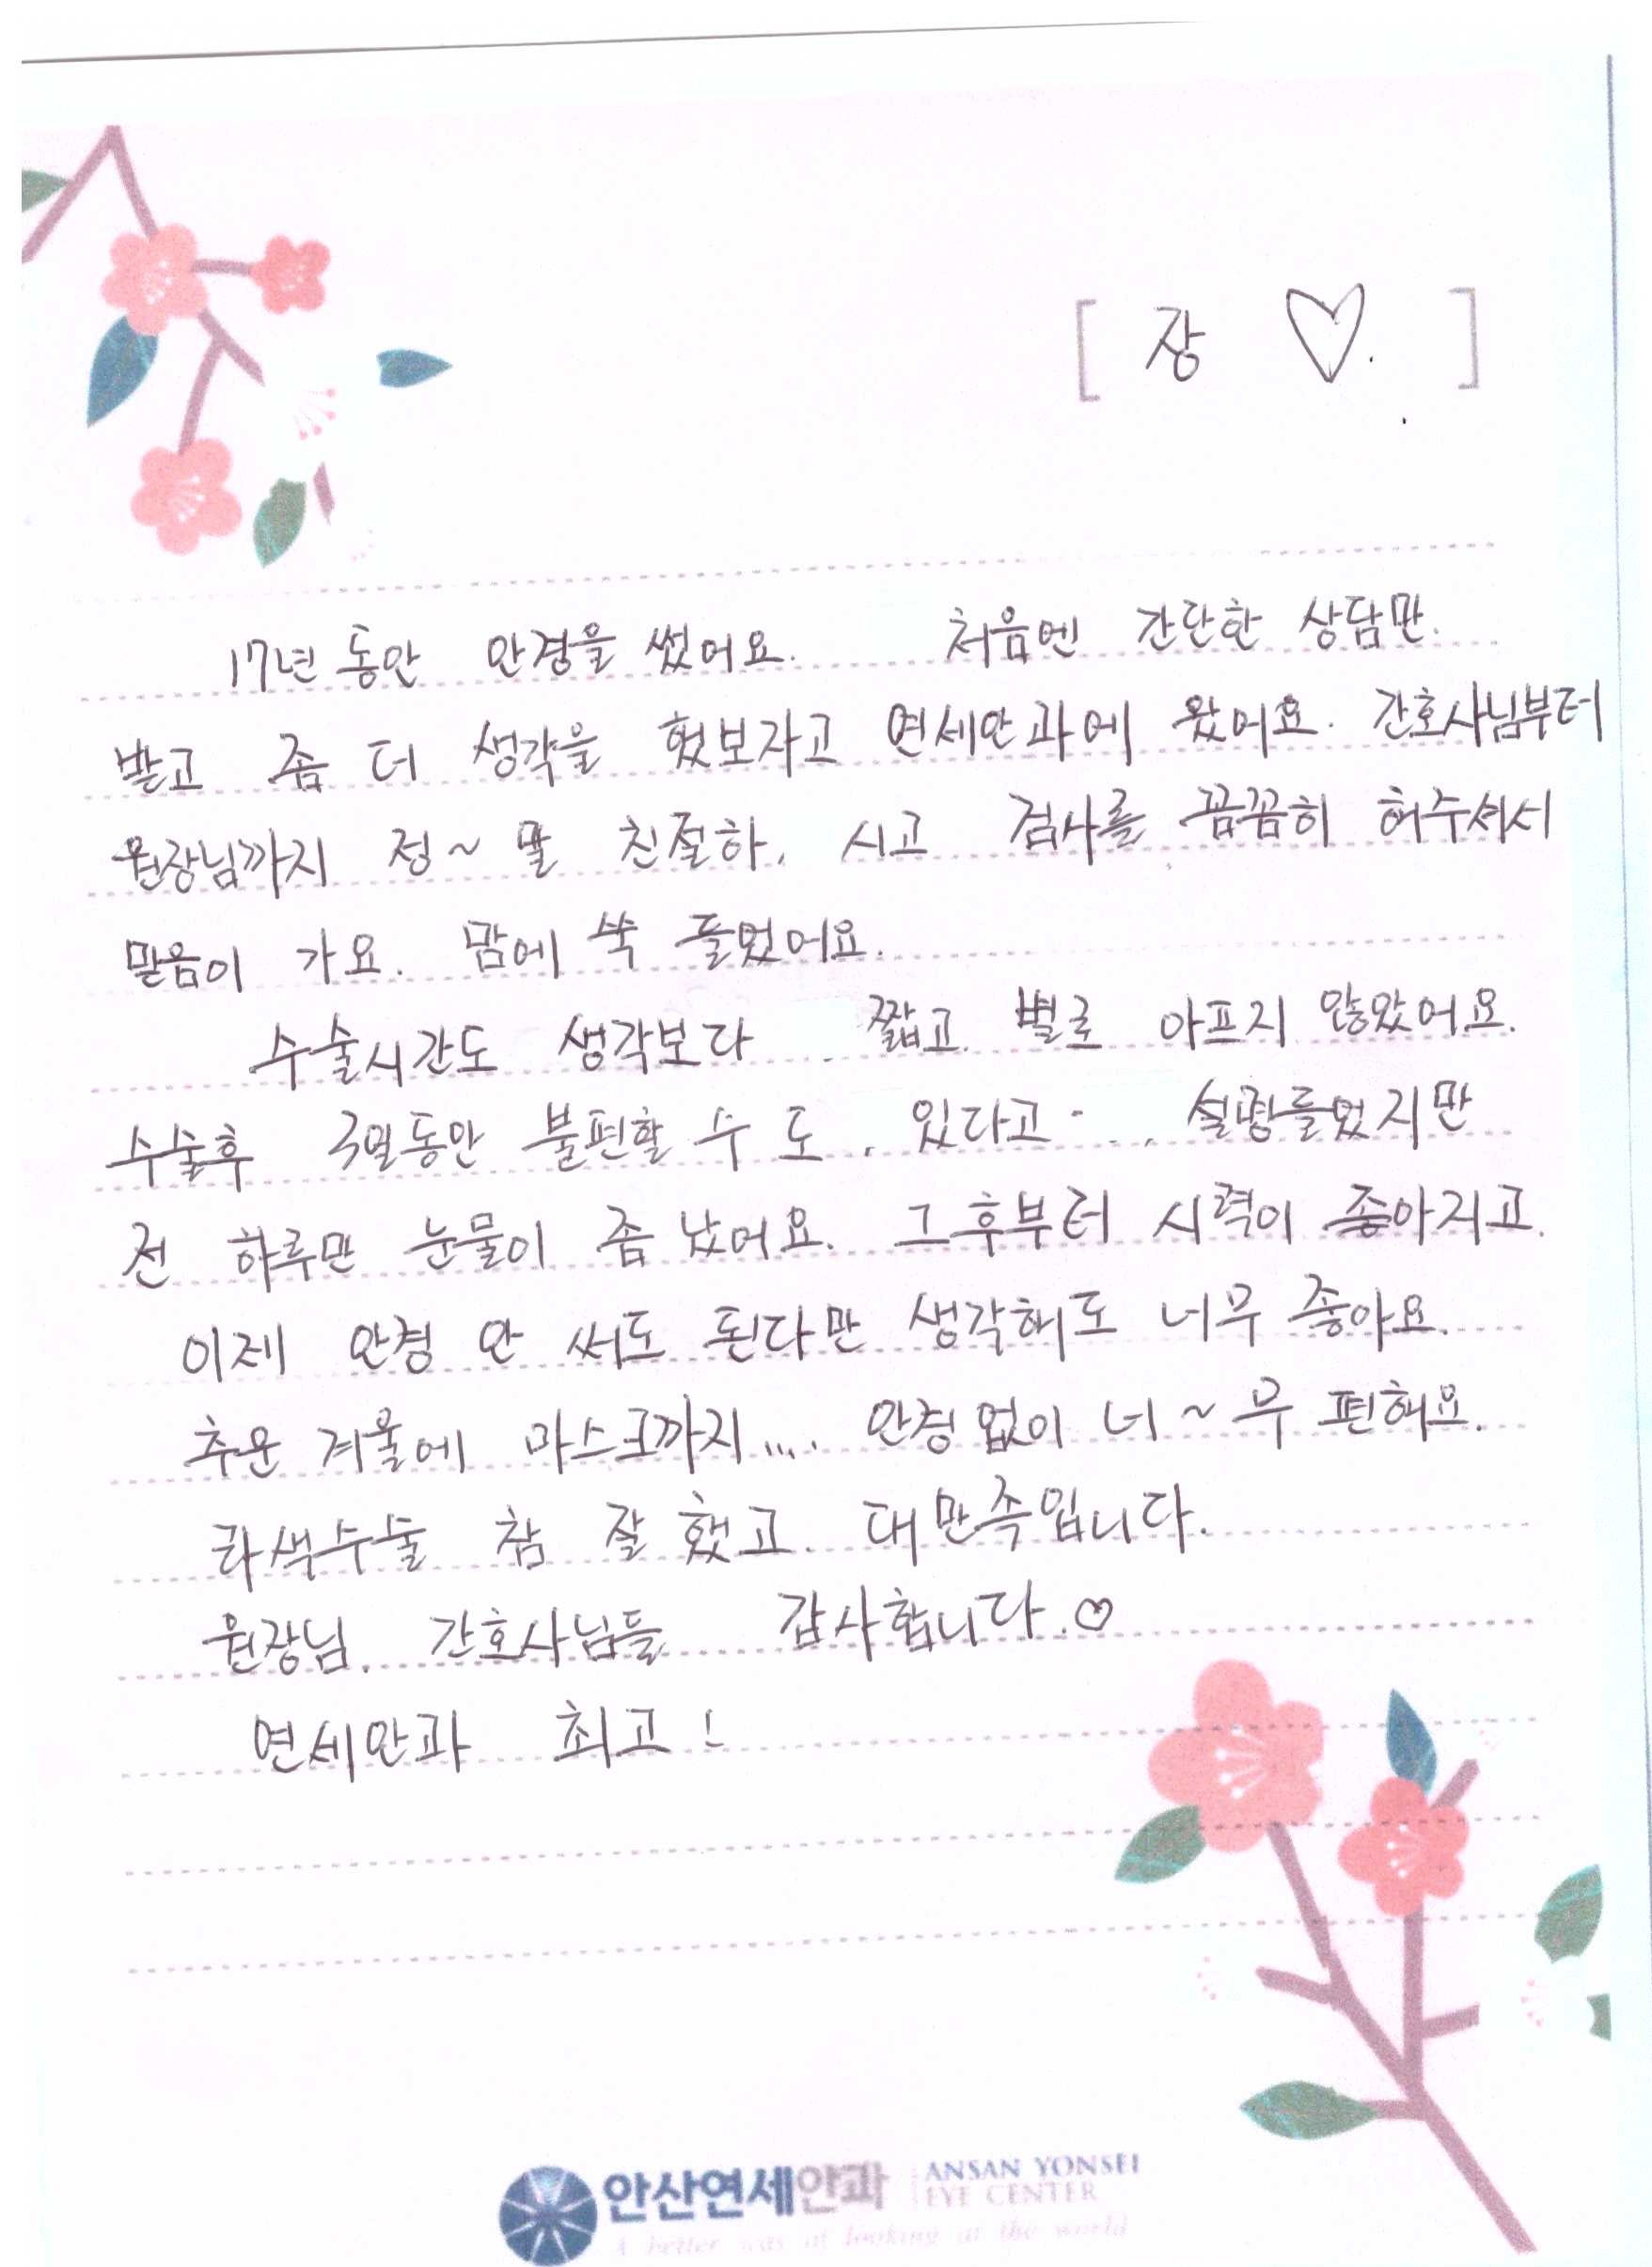 [ 장 ♡. ]
17년 동안 안경을 썼어요. 처음엔 간단한 상담만.
받고 좀 더 생각을 혔보자고 연세안과에 왔어요. 간호사님부터
원장님까지 정~말 친절하. 시고 검사를 꼼꼼히 허주셔서
믿음이 가요. 맘에 쏙 들었어요.
수술시간도 생각보다 짧고 별로 아프지 않았어요.
수술후 3일동안 불편할 수 도. 있다고 설명들었지만
전 하루만 눈물이 좀 났어요. 그후부터 시력이 좋아지고.
이제 안경 안 써도 된다만 생각해도 너무 좋아요.
추운 겨울에 마스크까지.... 안경없이 너~무 편해요.
라섹수술 참 잘 했고. 대만족입니다.
원장님. 간호사님들 감사합니다.♡
연세안과 최고!
안산연세안과 ANSAN YONSEI
EYE CENTER
A better way of looking at the world